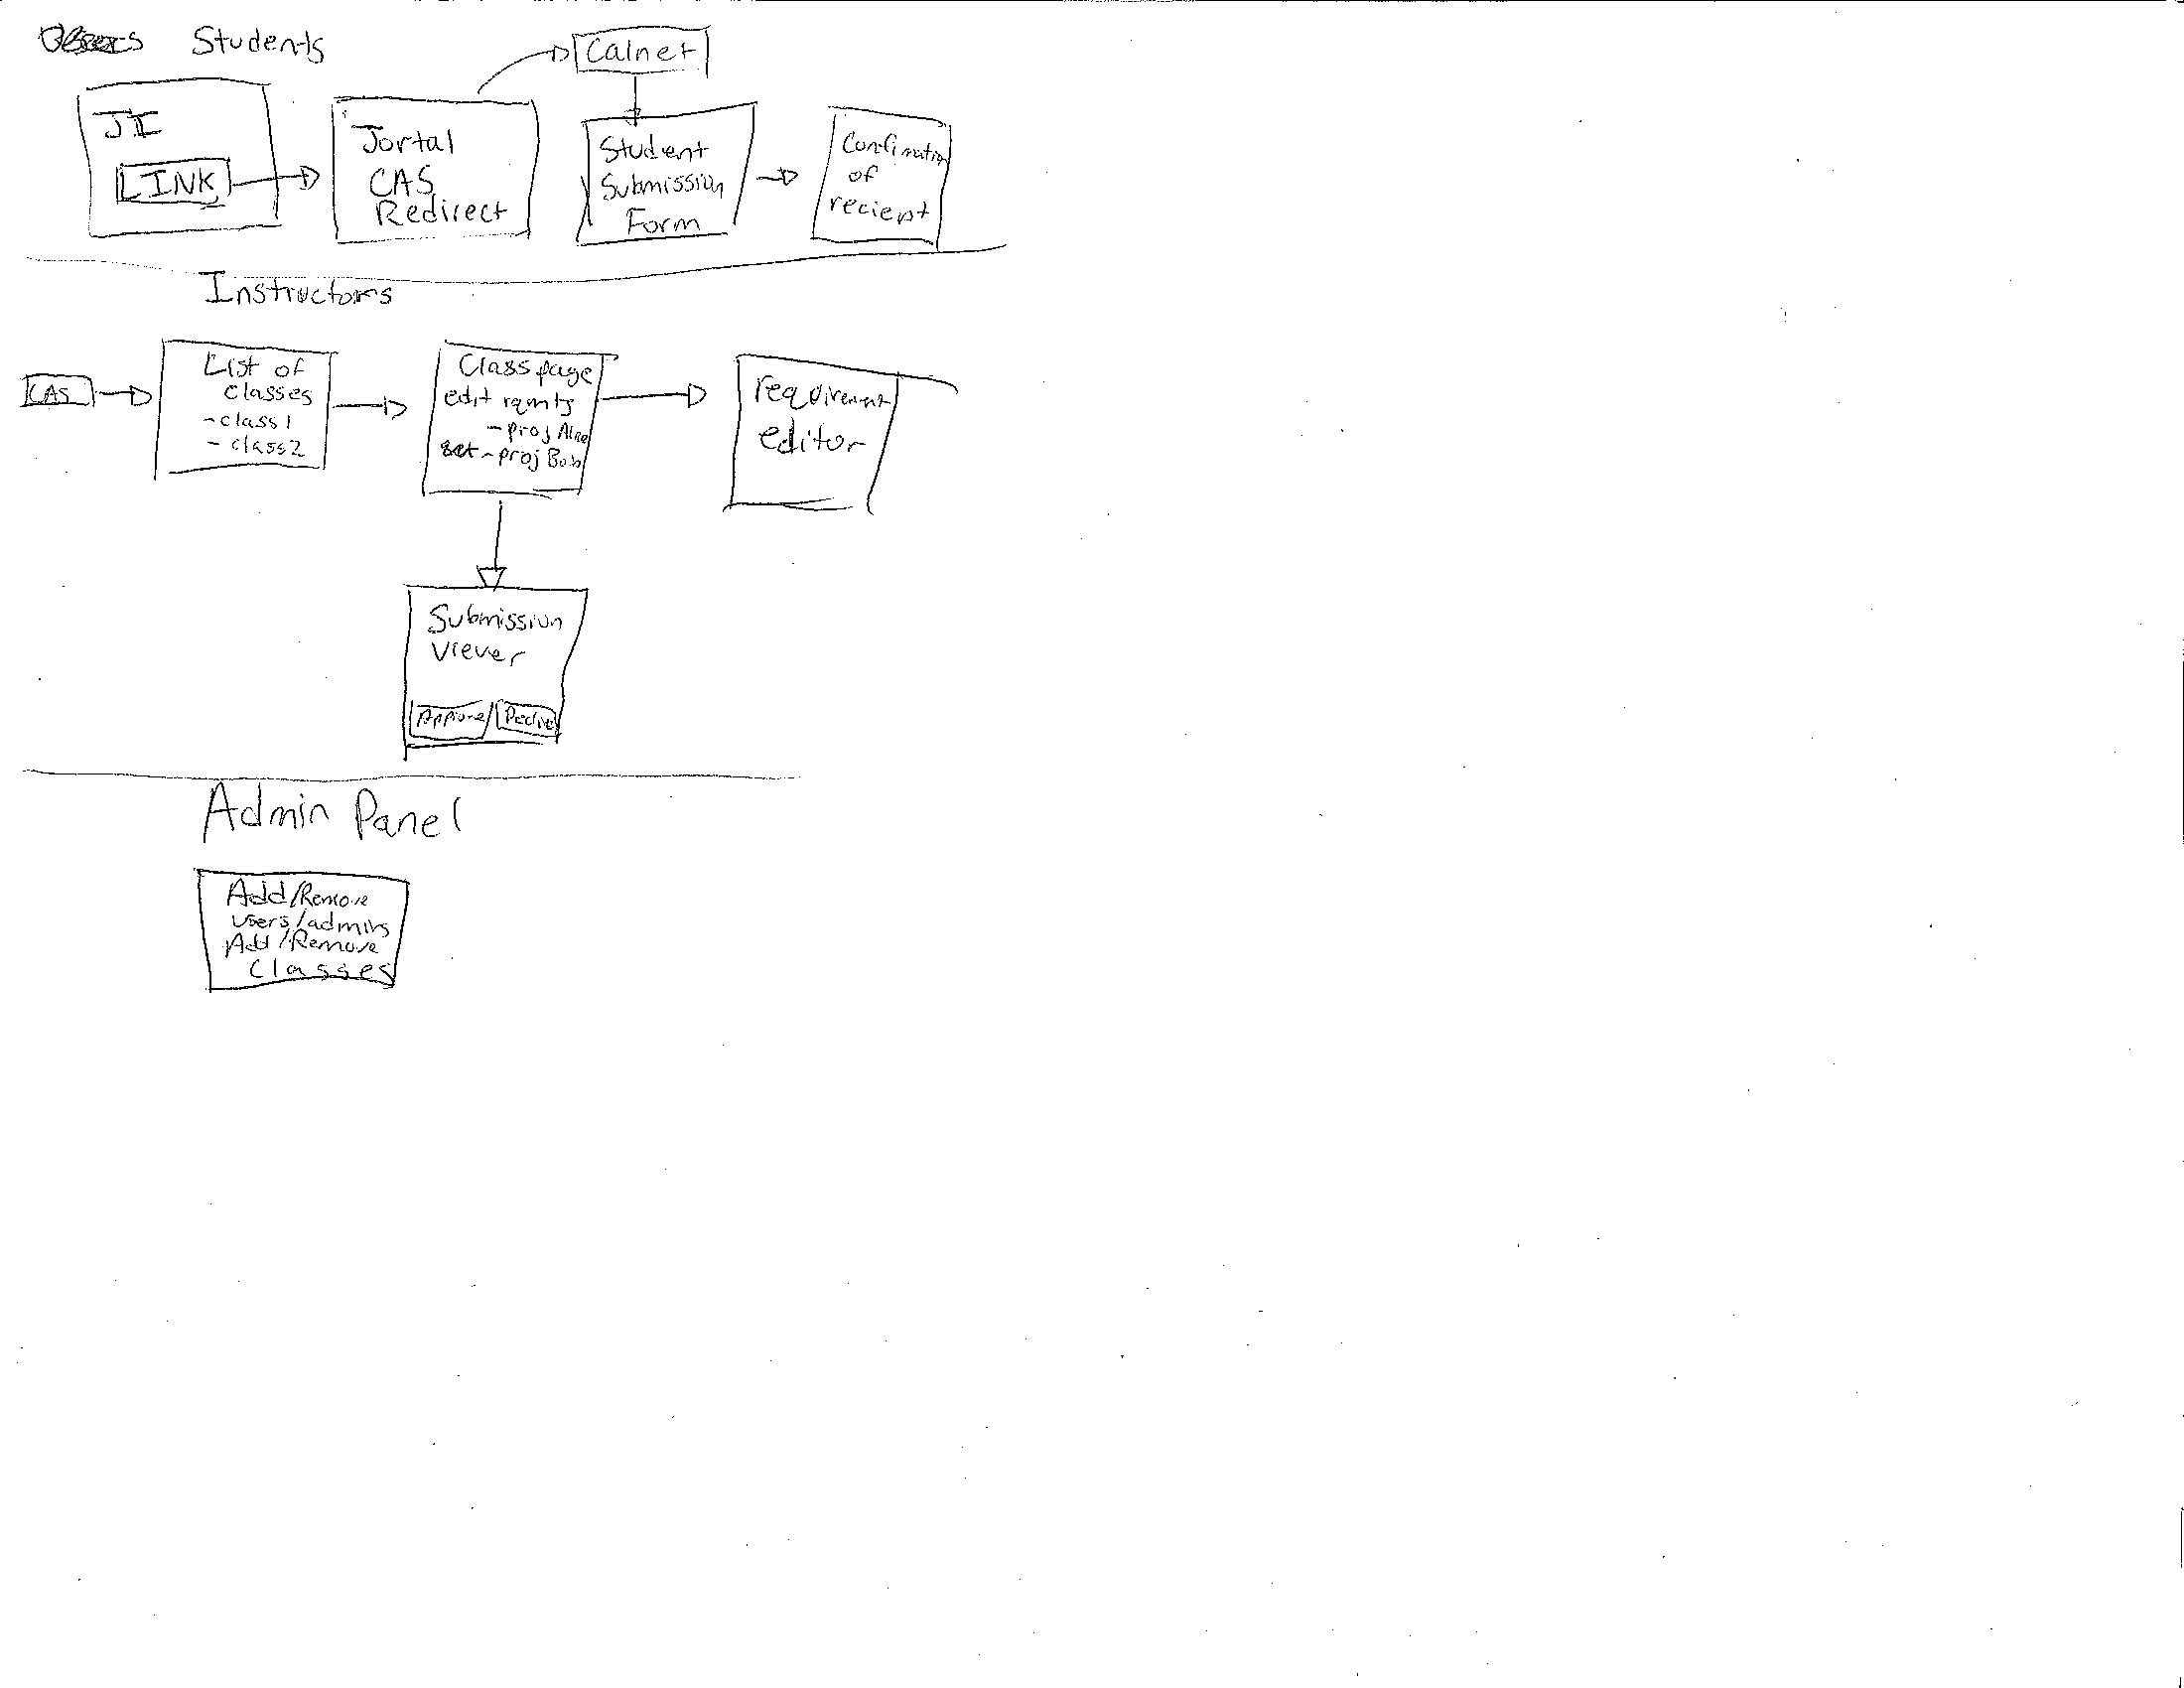 Students
Calnet
JI
LINK
Jortal
CAS
Redirect
Student
Submission
Form
Confirmation
of
reciept
Instructors
CAS
List of
classes
- class 1
- class 2
Class page
edit rqmts
- proj Alice
set - proj Bob
requirement
editor
Submission
Viewer
Approve / Decline
Admin Panel
Add/Remove
users/admins
Add/Remove
Classes